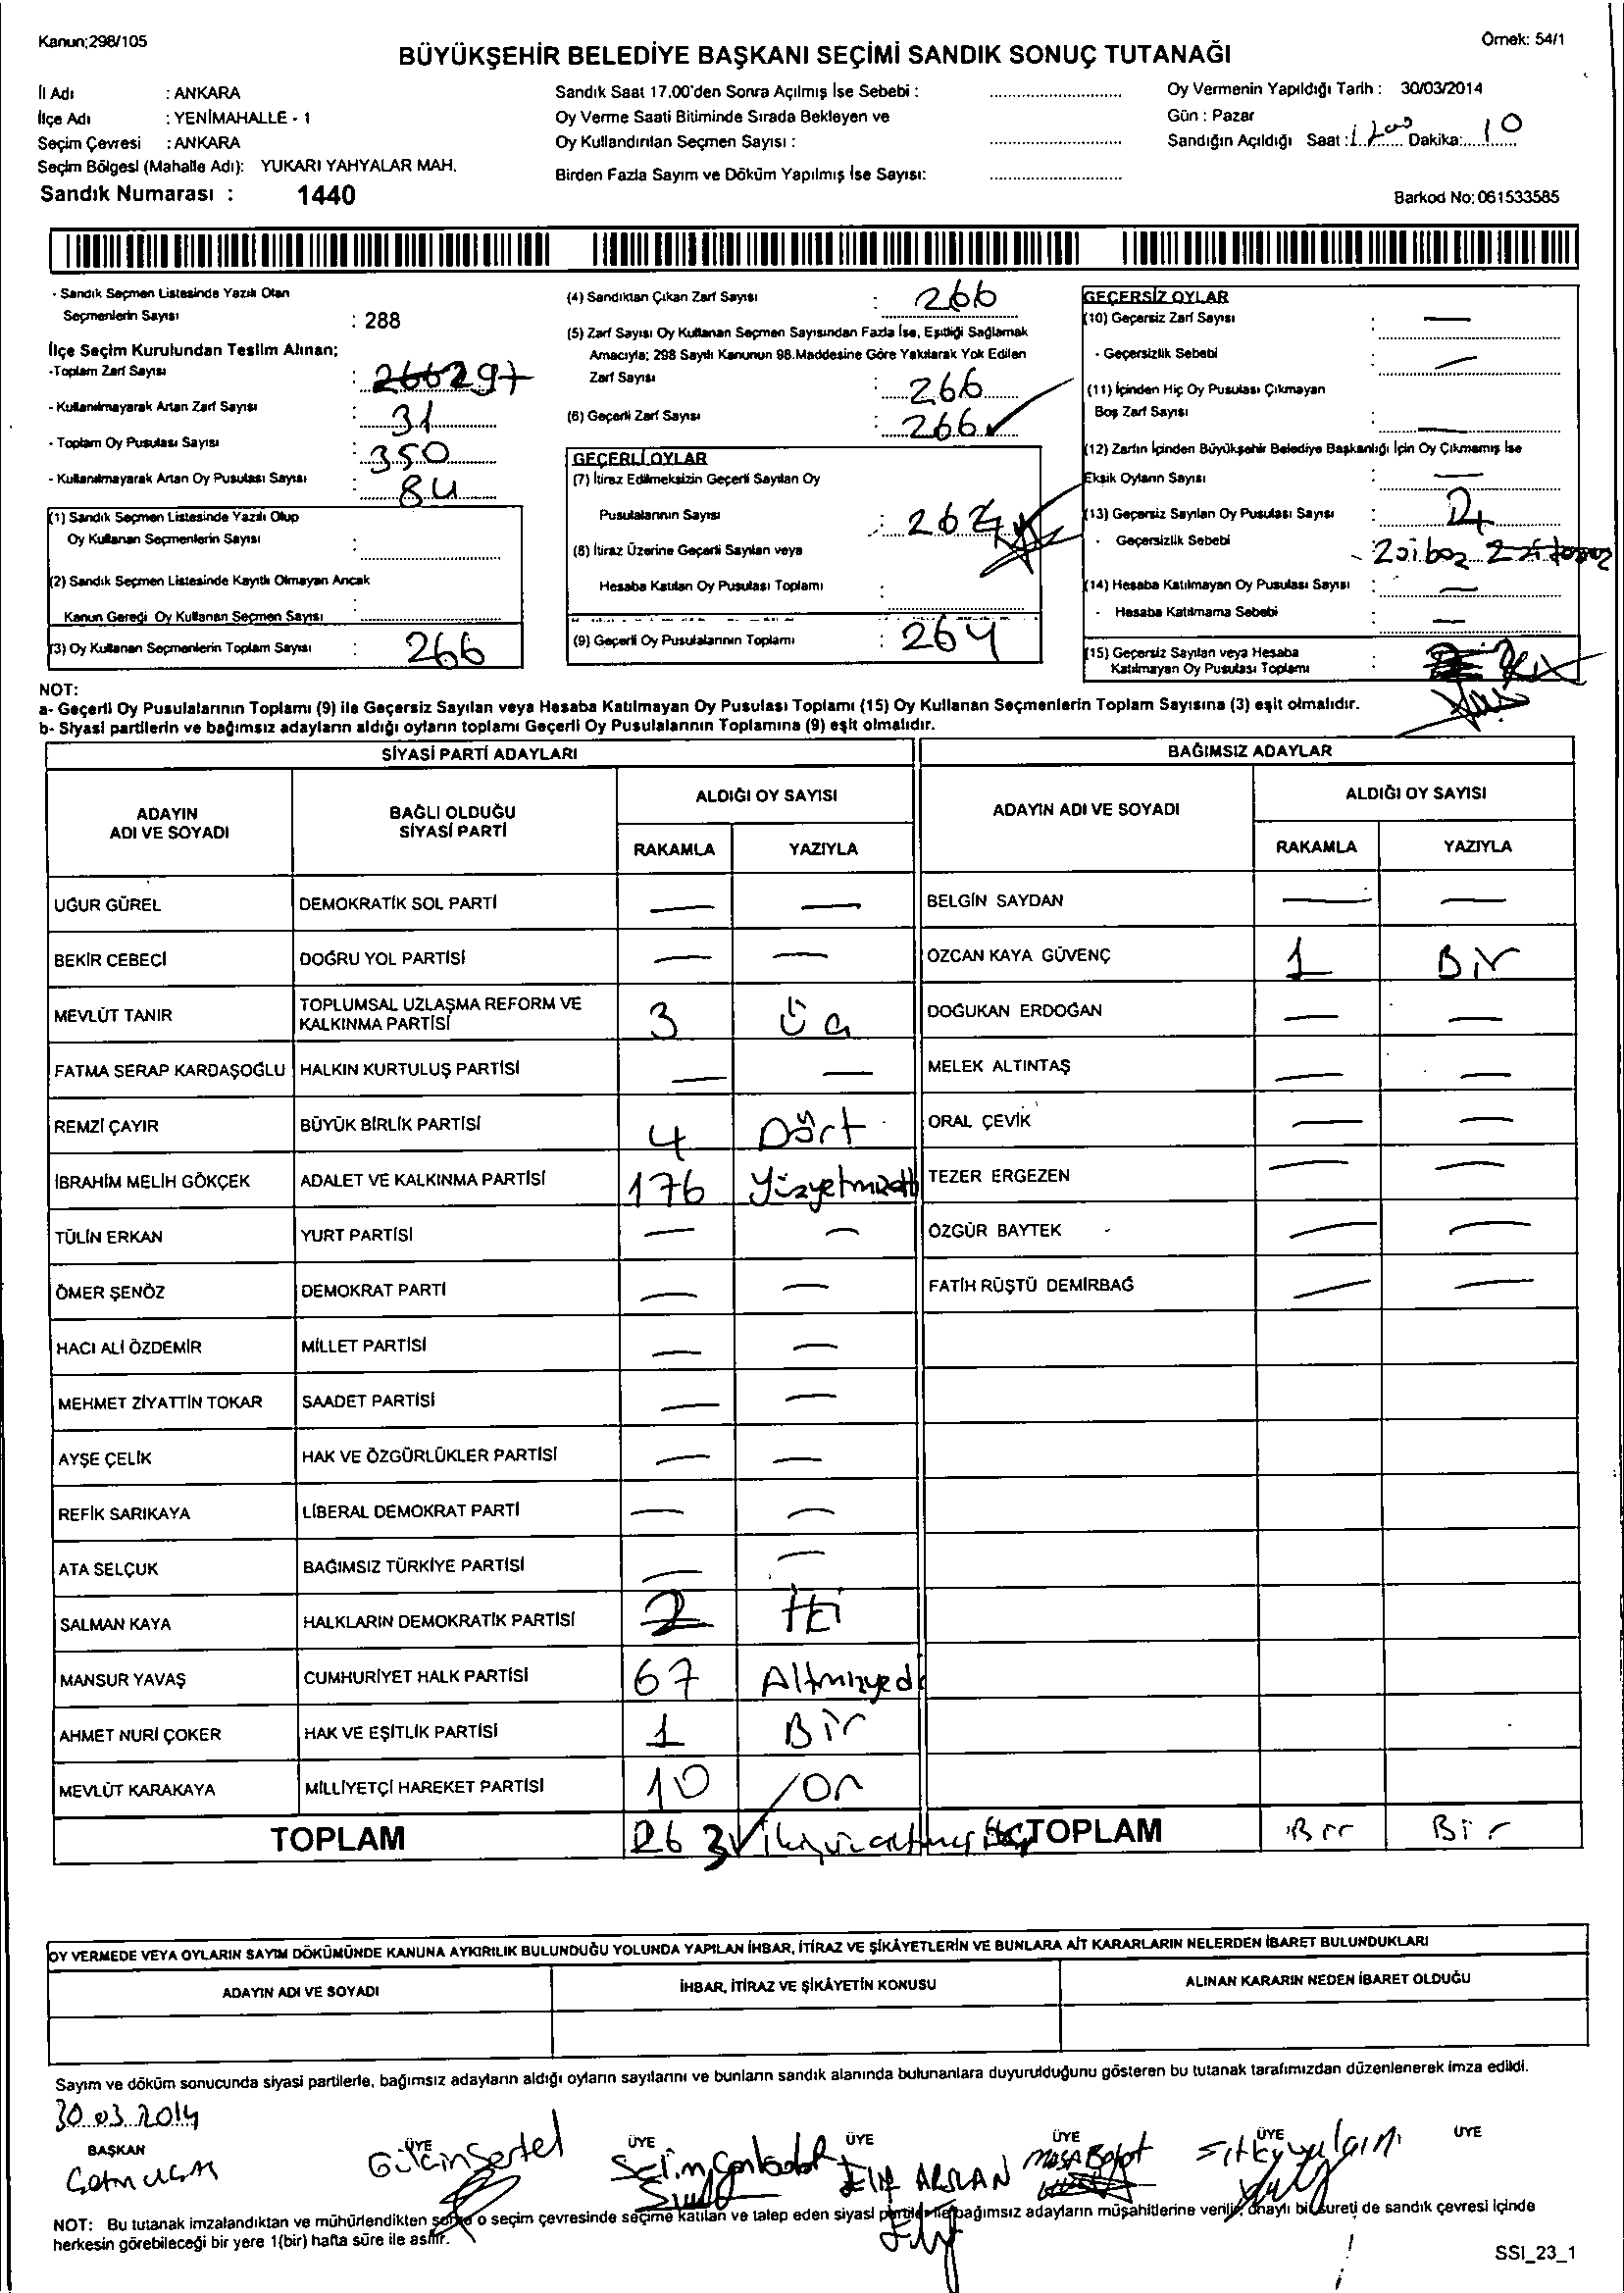 Kanun;298/105
Örnek: 54/1
BÜYÜKŞEHİR BELEDİYE BAŞKANI SEÇİMİ SANDIK SONUÇ TUTANAĞI
İl Adı : ANKARA
İlçe Adı : YENİMAHALLE - 1
Seçim Çevresi : ANKARA
Seçim Bölgesi (Mahalle Adı): YUKARI YAHYALAR MAH.
Sandık Numarası : 1440
Sandık Saat 17.00'den Sonra Açılmış İse Sebebi :
Oy Verme Saati Bitiminde Sırada Bekleyen ve
Oy Kullandırılan Seçmen Sayısı :
Birden Fazla Sayım ve Döküm Yapılmış İse Sayısı:
Oy Vermenin Yapıldığı Tarih : 30/03/2014
Gün : Pazar
Sandığın Açıldığı Saat : Dakika: 10
Barkod No: 061533585
- Sandık Seçmen Listesinde Yazılı Olan
Seçmenlerin Sayısı : 288
İlçe Seçim Kurulundan Teslim Alınan;
-Toplam Zarf Sayısı : 266 297
- Kullanılmayarak Artan Zarf Sayısı : 31
- Toplam Oy Pusulası Sayısı : 350
- Kullanılmayarak Artan Oy Pusulası Sayısı : 84
(1) Sandık Seçmen Listesinde Yazılı Olup
Oy Kullanan Seçmenlerin Sayısı :
(2) Sandık Seçmen Listesinde Kayıtlı Olmayan Ancak
Kanun Gereği Oy Kullanan Seçmen Sayısı :
(3) Oy Kullanan Seçmenlerin Toplam Sayısı : 266
(4) Sandıktan Çıkan Zarf Sayısı : 266
(5) Zarf Sayısı Oy Kullanan Seçmen Sayısından Fazla İse, Eşitliği Sağlamak
Amacıyla; 298 Sayılı Kanunun 98.Maddesine Göre Yakılarak Yok Edilen
Zarf Sayısı : 266
(6) Geçerli Zarf Sayısı : 266
GEÇERLİ OYLAR
(7) İtiraz Edilmeksizin Geçerli Sayılan Oy
Pusulalarının Sayısı : 264
(8) İtiraz Üzerine Geçerli Sayılan veya
Hesaba Katılan Oy Pusulası Toplamı :
(9) Geçerli Oy Pusulalarının Toplamı : 264
GEÇERSİZ OYLAR
(10) Geçersiz Zarf Sayısı : —
- Geçersizlik Sebebi : —
(11) İçinden Hiç Oy Pusulası Çıkmayan
Boş Zarf Sayısı : —
(12) Zarfın İçinden Büyükşehir Belediye Başkanlığı İçin Oy Çıkmamış İse
Eksik Oyların Sayısı : —
(13) Geçersiz Sayılan Oy Pusulası Sayısı : 2
- Geçersizlik Sebebi :
(14) Hesaba Katılmayan Oy Pusulası Sayısı : —
- Hesaba Katılmama Sebebi : —
(15) Geçersiz Sayılan veya Hesaba
Katılmayan Oy Pusulası Toplamı :
NOT:
a- Geçerli Oy Pusulalarının Toplamı (9) ile Geçersiz Sayılan veya Hesaba Katılmayan Oy Pusulası Toplamı (15) Oy Kullanan Seçmenlerin Toplam Sayısına (3) eşit olmalıdır.
b- Siyasi partilerin ve bağımsız adayların aldığı oyların toplamı Geçerli Oy Pusulalarının Toplamına (9) eşit olmalıdır.
SİYASİ PARTİ ADAYLARI
ADAYIN ADI VE SOYADI
BAĞLI OLDUĞU SİYASİ PARTİ
ALDIĞI OY SAYISI
RAKAMLA YAZIYLA
UĞUR GÜREL DEMOKRATİK SOL PARTİ — —
BEKİR CEBECİ DOĞRU YOL PARTİSİ — —
MEVLÜT TANIR TOPLUMSAL UZLAŞMA REFORM VE KALKINMA PARTİSİ 3 Üç
FATMA SERAP KARDAŞOĞLU HALKIN KURTULUŞ PARTİSİ — —
REMZİ ÇAYIR BÜYÜK BİRLİK PARTİSİ 4 Dört
İBRAHİM MELİH GÖKÇEK ADALET VE KALKINMA PARTİSİ 176 Yüzyetmişaltı
TÜLİN ERKAN YURT PARTİSİ — —
ÖMER ŞENÖZ DEMOKRAT PARTİ — —
HACI ALİ ÖZDEMİR MİLLET PARTİSİ — —
MEHMET ZİYATTİN TOKAR SAADET PARTİSİ — —
AYŞE ÇELİK HAK VE ÖZGÜRLÜKLER PARTİSİ — —
REFİK SARIKAYA LİBERAL DEMOKRAT PARTİ — —
ATA SELÇUK BAĞIMSIZ TÜRKİYE PARTİSİ — —
SALMAN KAYA HALKLARIN DEMOKRATİK PARTİSİ 2 İki
MANSUR YAVAŞ CUMHURİYET HALK PARTİSİ 67 Altmışyedi
AHMET NURİ ÇOKER HAK VE EŞİTLİK PARTİSİ 1 Bir
MEVLÜT KARAKAYA MİLLİYETÇİ HAREKET PARTİSİ 10 On
TOPLAM 263 ikiyüzaltmışüç
BAĞIMSIZ ADAYLAR
ADAYIN ADI VE SOYADI
ALDIĞI OY SAYISI
RAKAMLA YAZIYLA
BELGİN SAYDAN — —
ÖZCAN KAYA GÜVENÇ 1 Bir
DOĞUKAN ERDOĞAN — —
MELEK ALTINTAŞ — —
ORAL ÇEVİK — —
TEZER ERGEZEN — —
ÖZGÜR BAYTEK — —
FATİH RÜŞTÜ DEMİRBAĞ — —
TOPLAM Bir Bir
OY VERMEDE VEYA OYLARIN SAYIM DÖKÜMÜNDE KANUNA AYKIRILIK BULUNDUĞU YOLUNDA YAPILAN İHBAR, İTİRAZ VE ŞİKÂYETLERİN VE BUNLARA AİT KARARLARIN NELERDEN İBARET BULUNDUKLARI
ADAYIN ADI VE SOYADI
İHBAR, İTİRAZ VE ŞİKÂYETİN KONUSU
ALINAN KARARIN NEDEN İBARET OLDUĞU
Sayım ve döküm sonucunda siyasi partilerle, bağımsız adayların aldığı oyların sayılarını ve bunların sandık alanında bulunanlara duyurulduğunu gösteren bu tutanak tarafımızdan düzenlenerek imza edildi.
30.03.2014
BAŞKAN ÜYE ÜYE ÜYE ÜYE ÜYE ÜYE
Gülcin Sertel Selim Elif ARSLAN Musa Bolat Sıtkı yalçın
NOT: Bu tutanak imzalandıktan ve mühürlendikten sonra o seçim çevresinde seçime katılan ve talep eden siyasi partiler ile bağımsız adayların müşahitlerine verilir, onaylı bir sureti de sandık çevresi içinde
herkesin görebileceği bir yere 1(bir) hafta süre ile asılır.
SSI_23_1